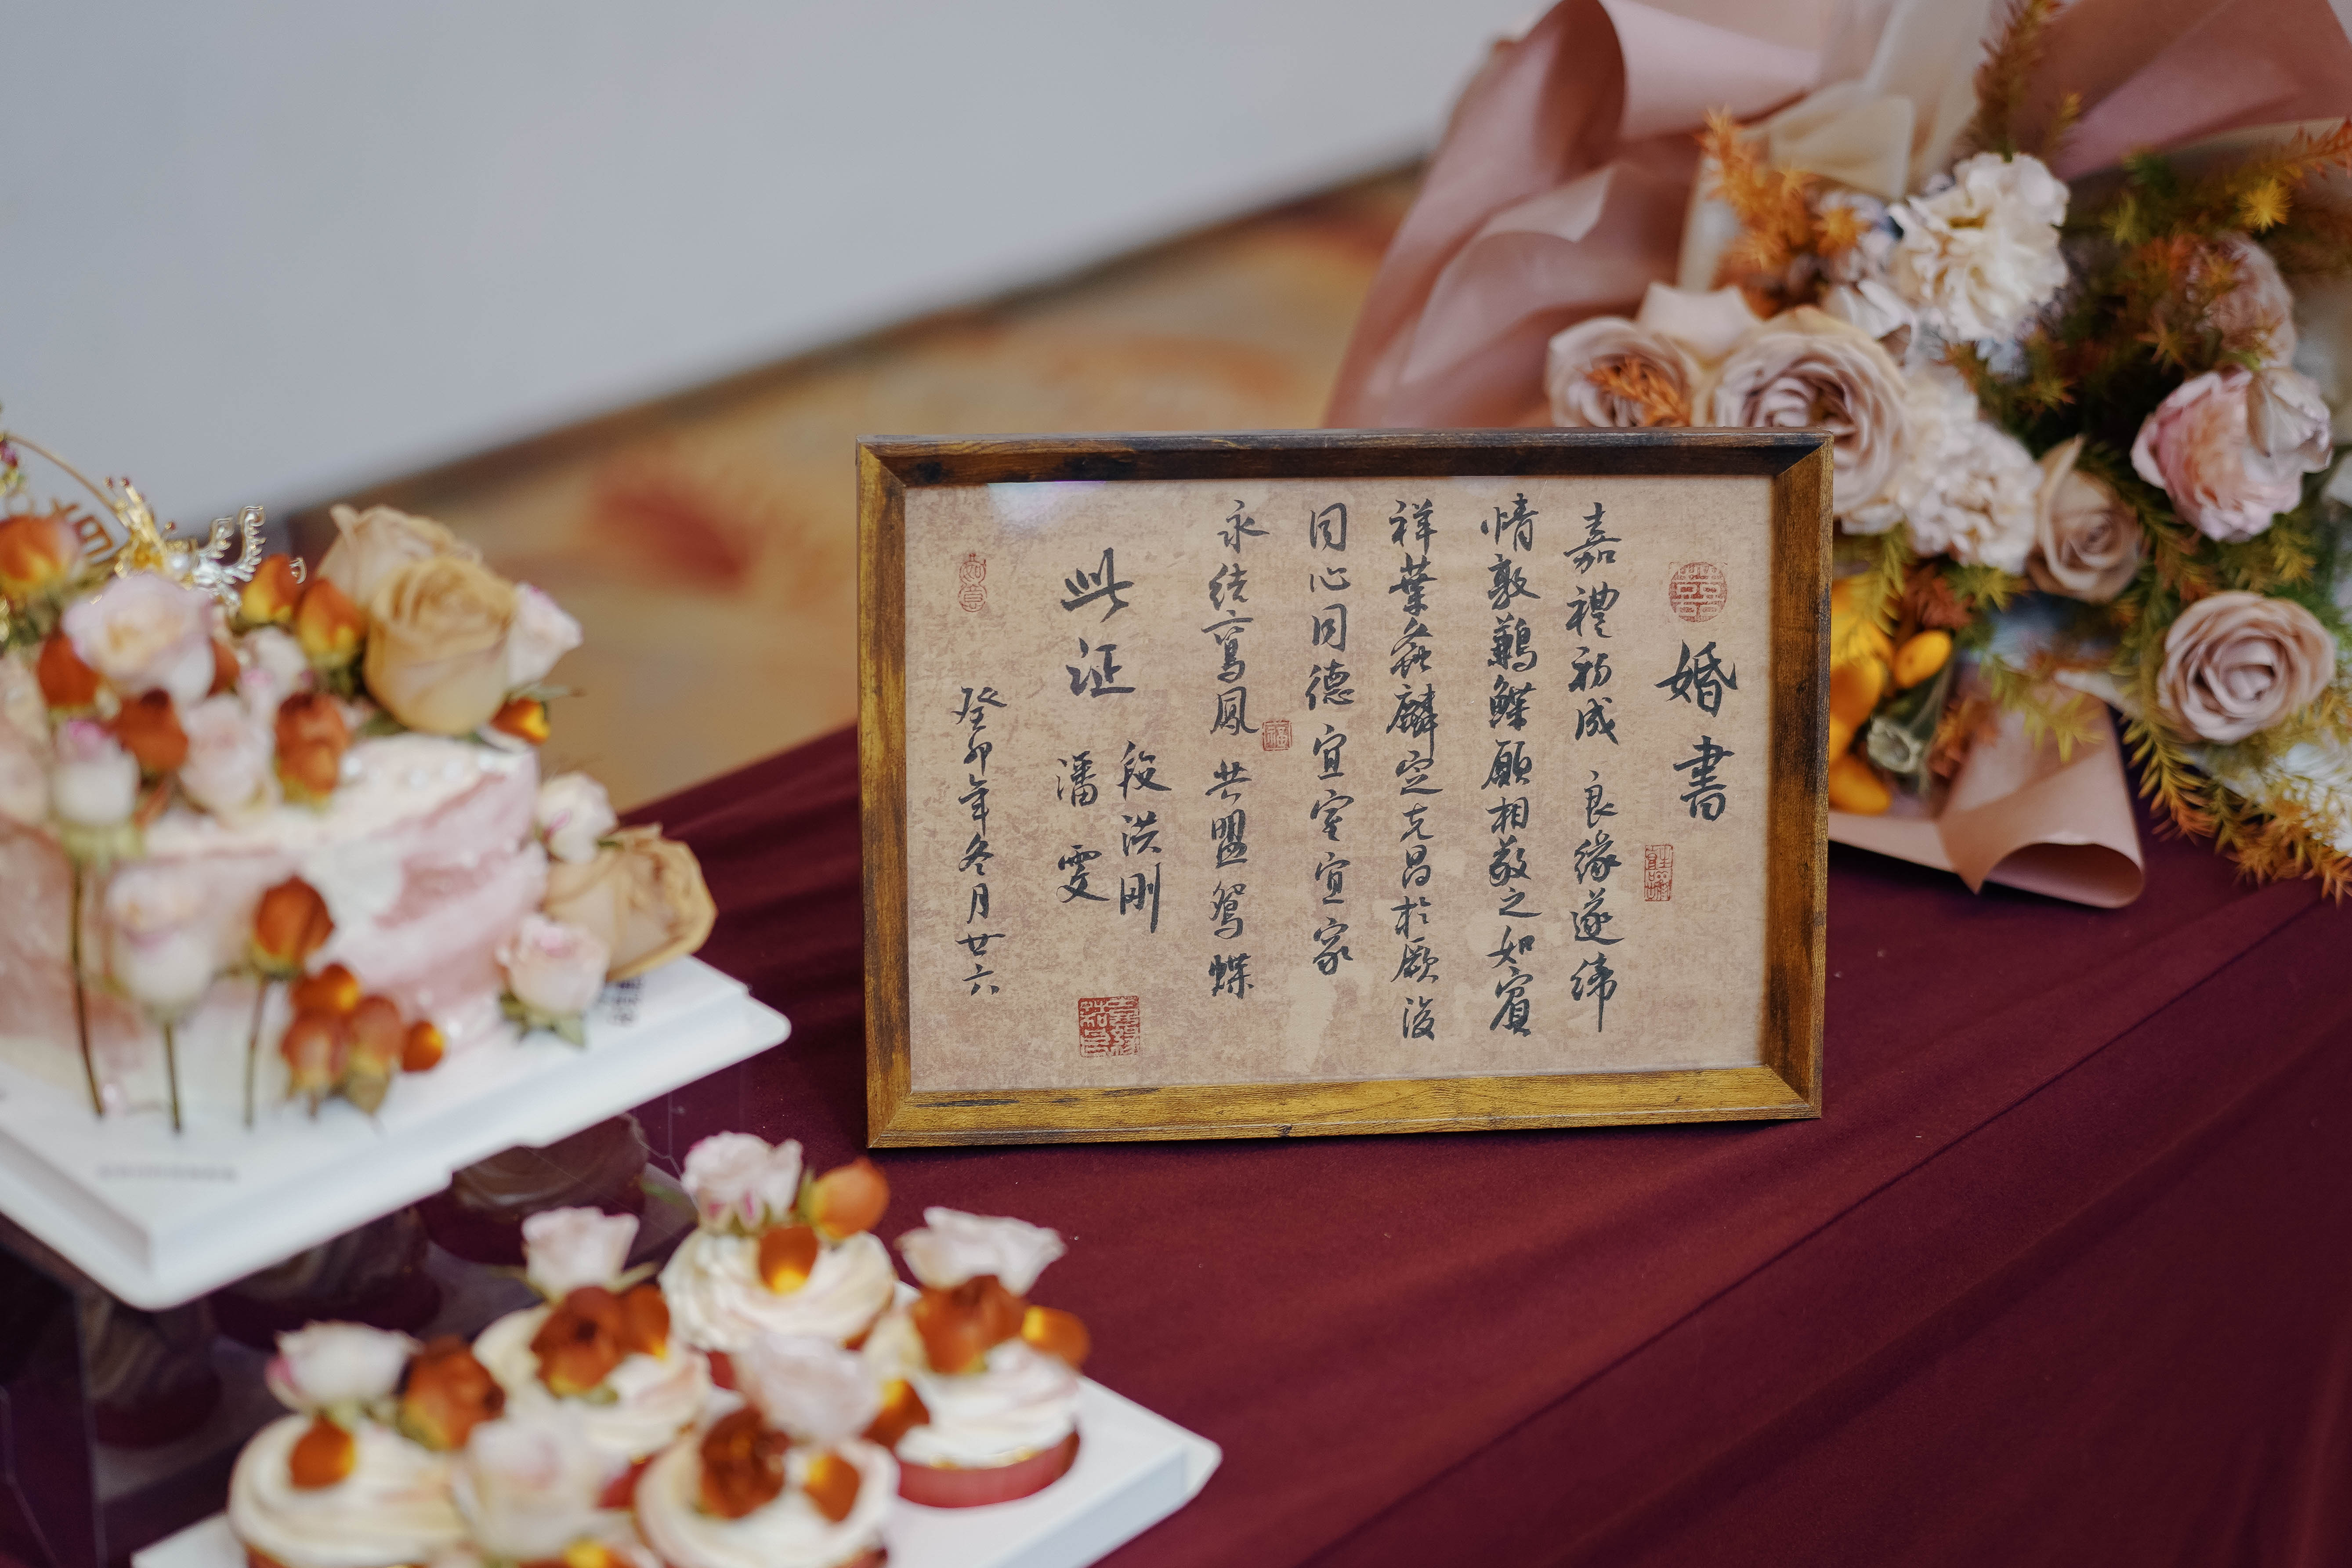 婚書
嘉禮初成 良緣遂締
情敦鶼鰈願相敬之如賓
祥葉螽麟定克昌於厥後
同心同德宜室宜家
永结鸞鳳 共盟鴛蝶
此证
段洪刚
潘雯
癸卯年冬月廿六